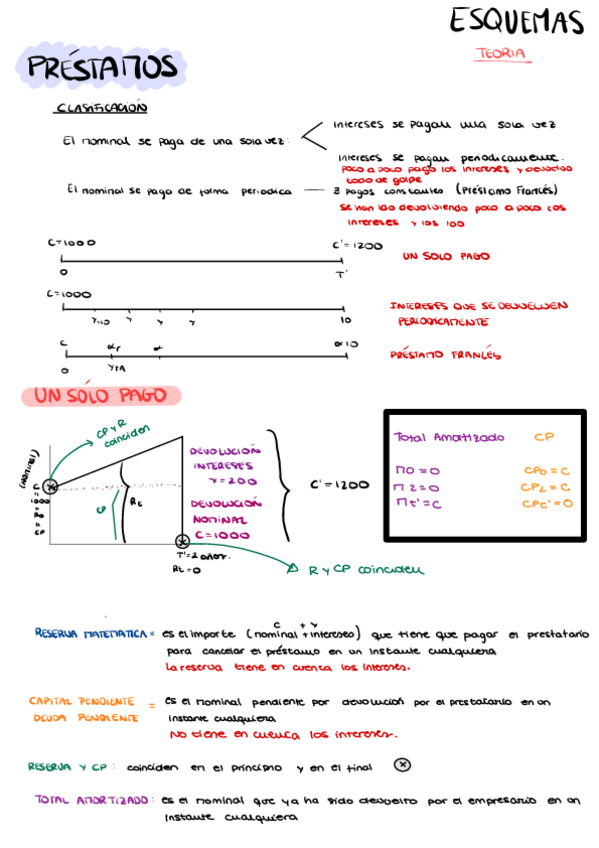 ESQUEMAS
TEORIA
PRÉSTAMOS
CLASIFICACIÓN
El nominal se paga de una sola vez:
intereses se pagan una sola vez
intereses se pagan periodicamente.
poco a poco pago los intereses y devuelvo
todo de golpe
El nominal se paga de forma periodica
pagos constantes (Préstamo Francés)
se han ido devolviendo poco a poco los
intereses y los 100
C=1000
C'=1200
UN SOLO PAGO
0
T'
C=1000
INTERESES QUE SE DEVUELVEN
PERIODICAMENTE
10
C
PRÉSTAMO FRANCÉS
0
UN SÓLO PAGO
CP y R
coinciden
(nominal)
CP
Rt
DEVOLUCIÓN
INTERESES
Y=200
DEVOLUCIÓN
NOMINAL
C=1000
C'=1200
T'=2 años.
Rt=0
R y CP coinciden
Total Amortizado CP
M0=0 CP0=C
M2=0 CP2=C
Mt'=C CPt'=0
C + Y
RESERVA MATEMATICA = es el importe (nominal + intereses) que tiene que pagar el prestatario
para cancelar el préstamo en un instante cualquiera
La reserva tiene en cuenta los intereses.
CAPITAL PENDIENTE = es el nominal pendiente por devolución por el prestatario en un
DEUDA PENDIENTE instante cualquiera
No tiene en cuenca los intereses.
RESERVA Y CP: coinciden en el principio y en el final
TOTAL AMORTIZADO: es el nominal que ya ha sido devuelto por el empresario en un
instante cualquiera